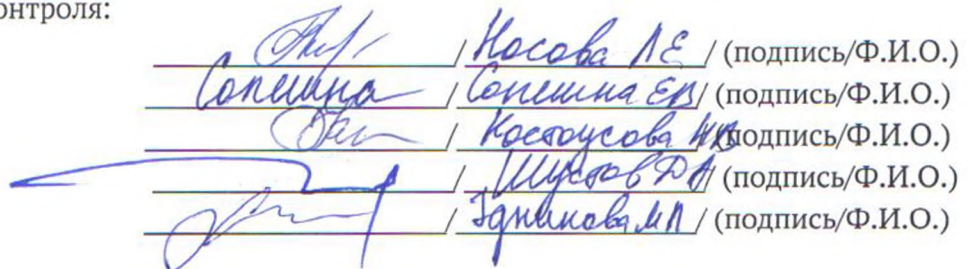 онтроля:
/ Носова Л Е / (подпись/Ф.И.О.)
Сопешна / Сопешна ЕВ / (подпись/Ф.И.О.)
/ Костоусова / (подпись/Ф.И.О.)
/ Шустов Д А / (подпись/Ф.И.О.)
/ М П / (подпись/Ф.И.О.)